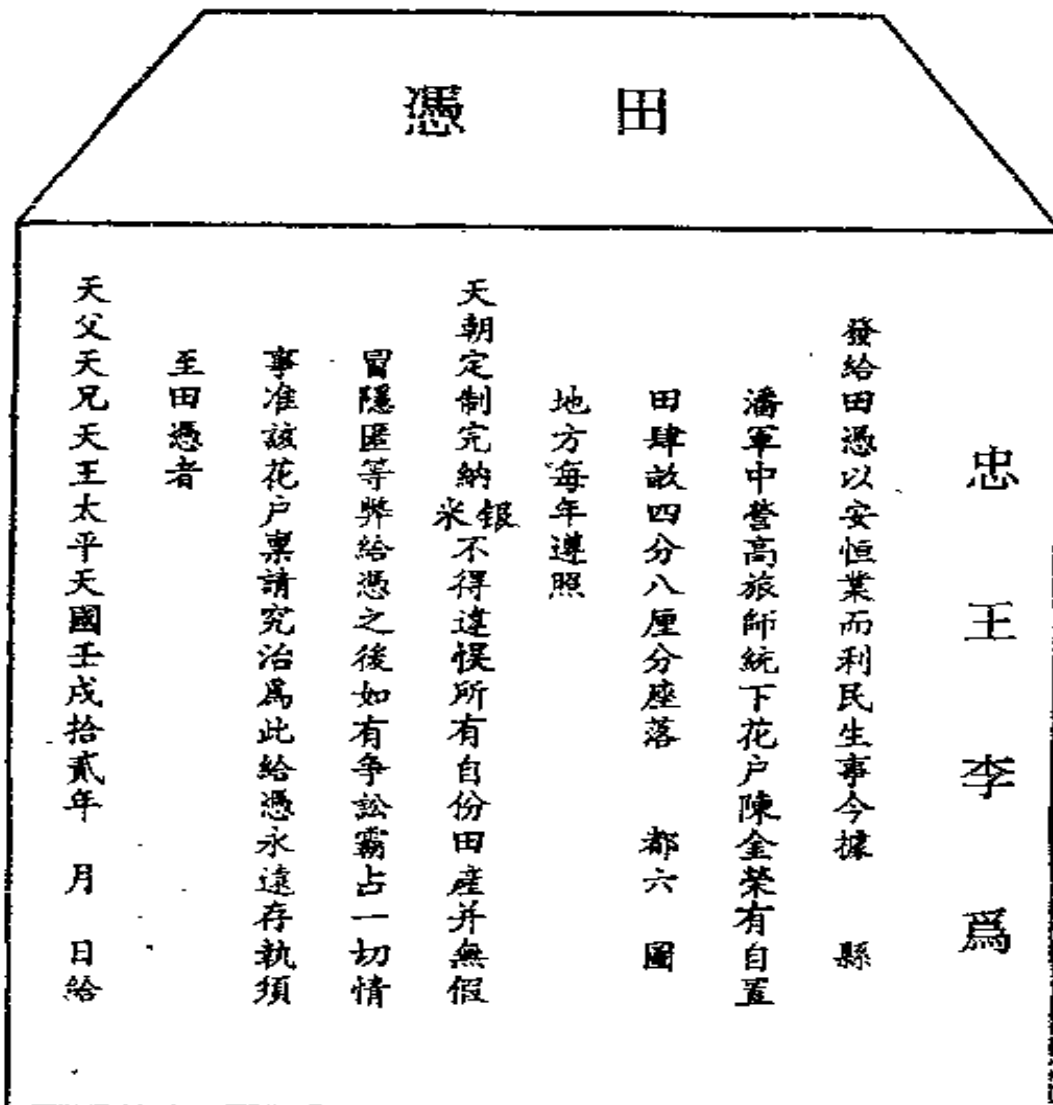 田憑
忠王李爲
發給田憑以安恒業而利民生事今據　縣
潘軍中營高旅師統下花户陳金榮有自置
田肆畝四分八厘分座落　都六　圖
地方每年遵照
天朝定制完納銀米不得違悮所有自份田産并無假
冒隱匿等弊給憑之後如有争訟霸占一切情
事准該花户禀請究治爲此給憑永遠存執須
至田憑者
天父天兄天王太平天國壬戌拾貳年　月　日給